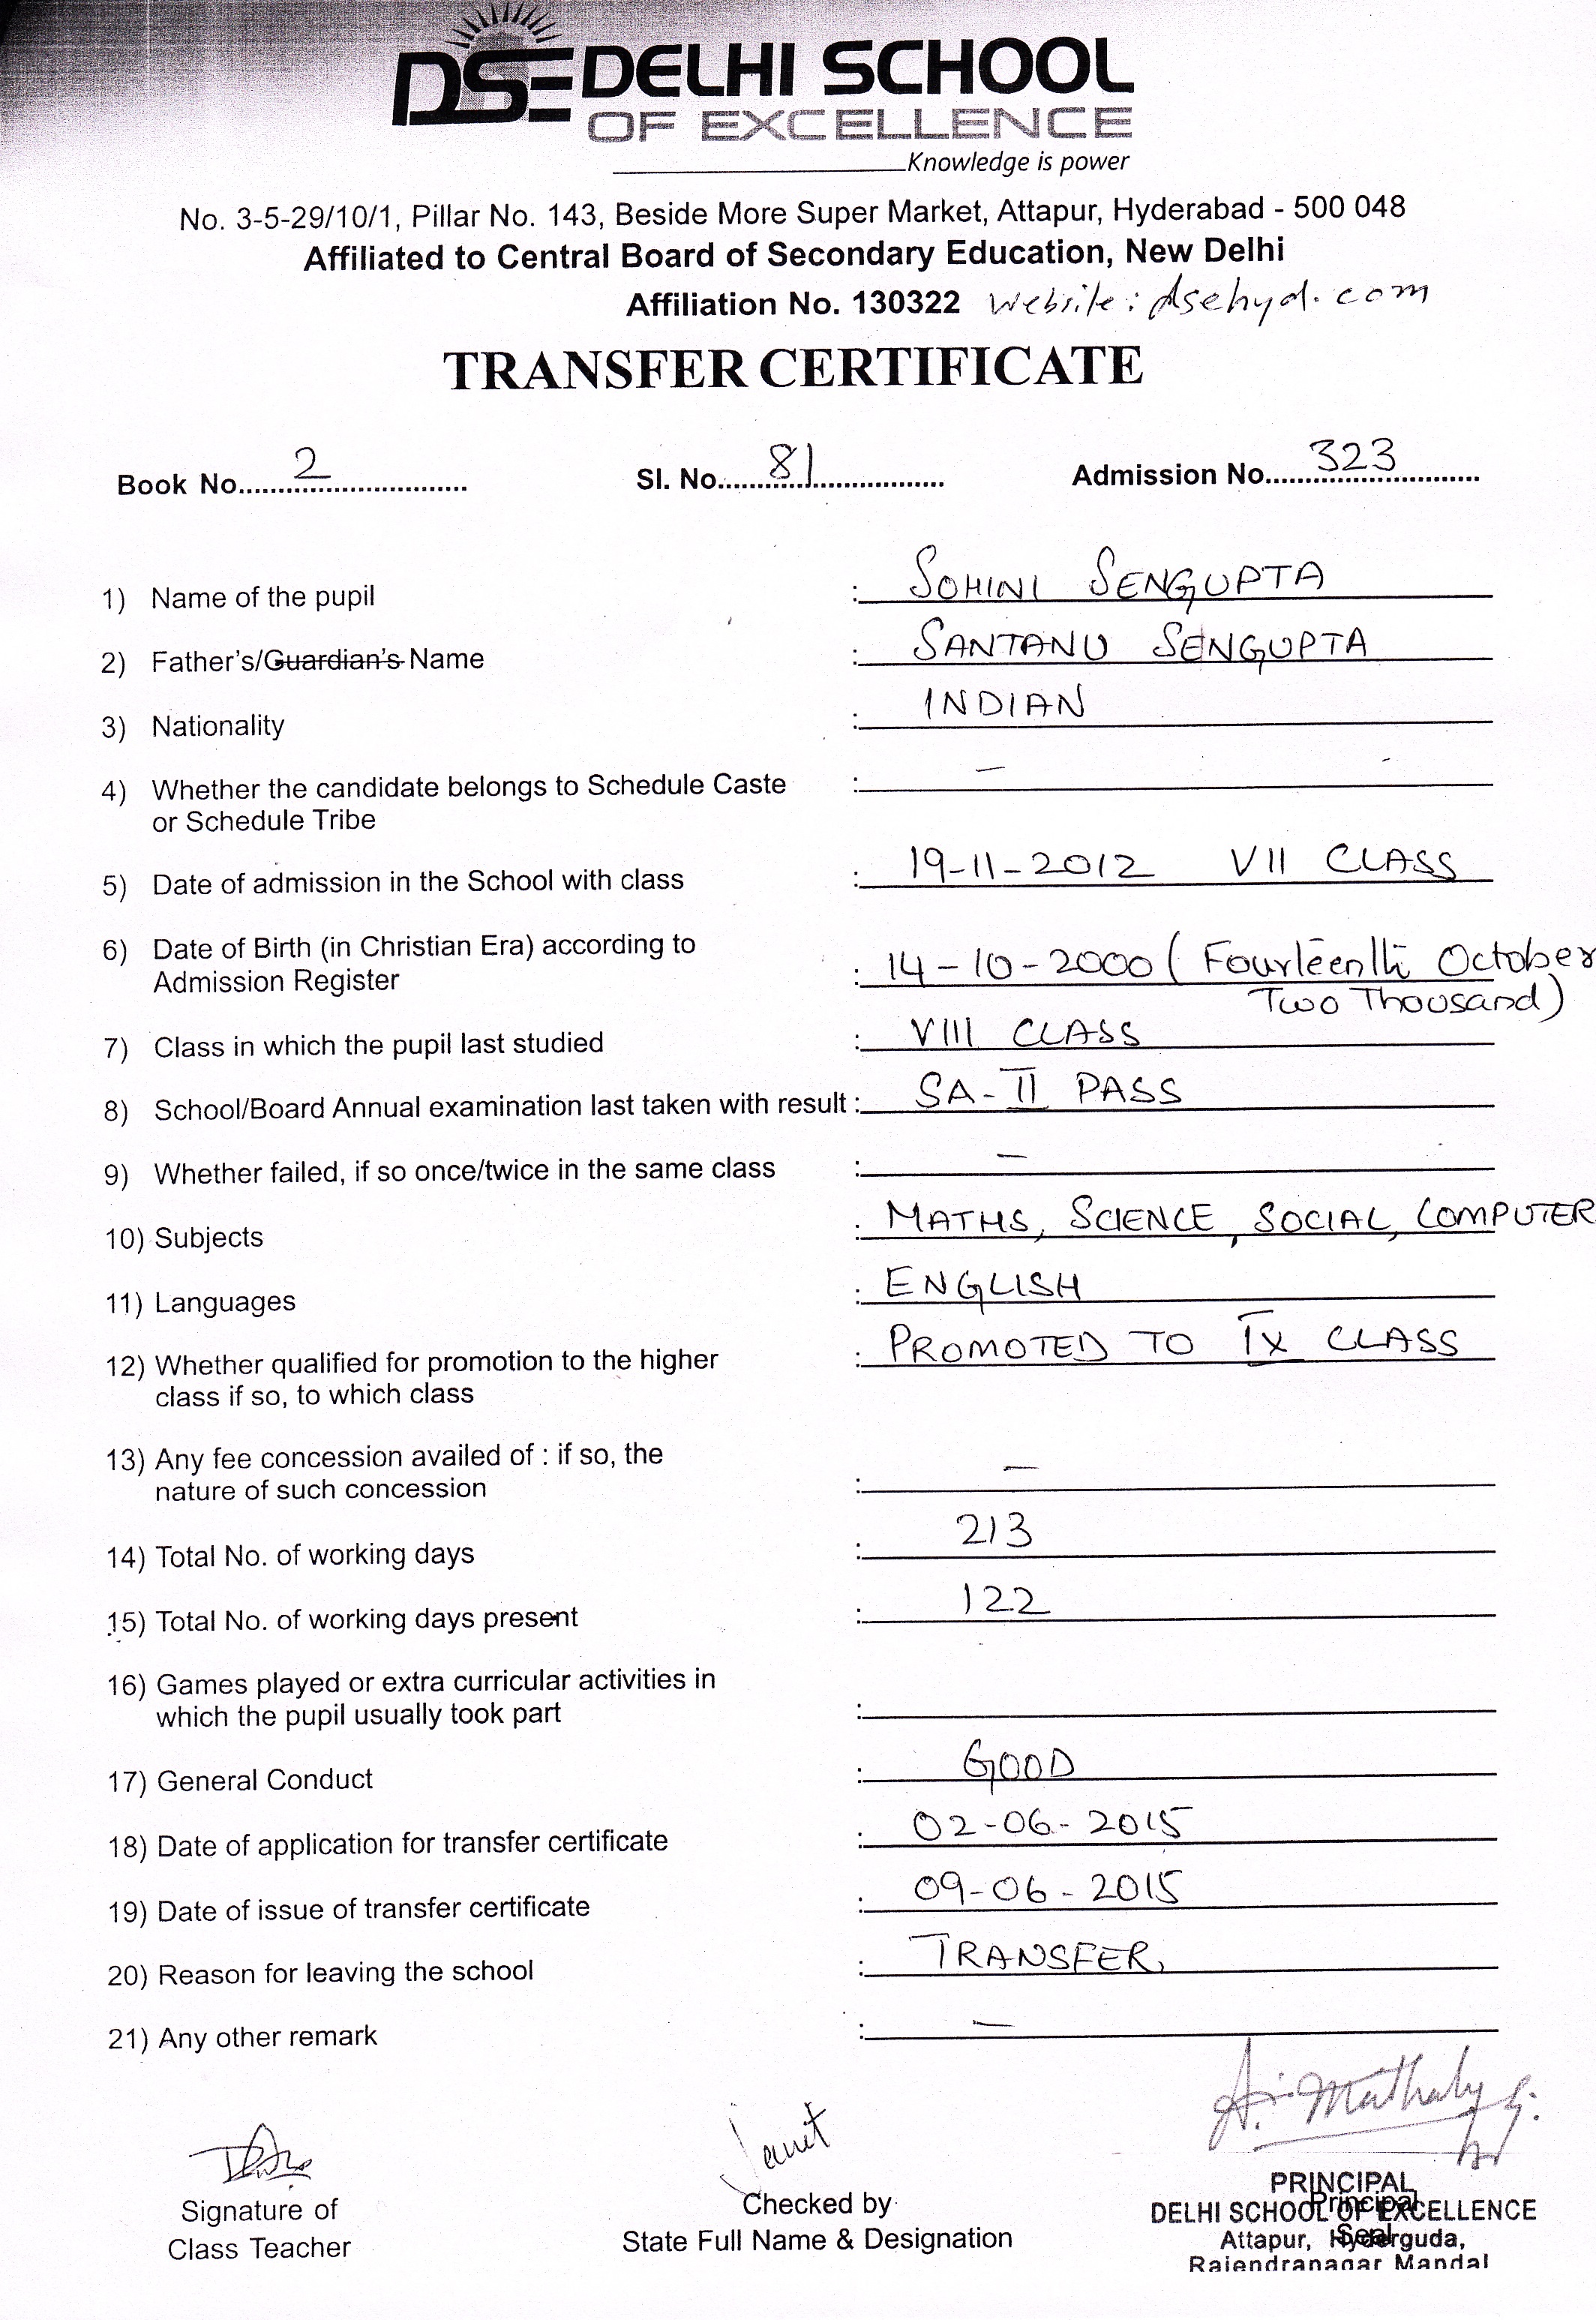 DSE DELHI SCHOOL
OF EXCELLENCE
Knowledge is power
No. 3-5-29/10/1, Pillar No. 143, Beside More Super Market, Attapur, Hyderabad - 500 048
Affiliated to Central Board of Secondary Education, New Delhi
Affiliation No. 130322 Website: dsehyd.com
TRANSFER CERTIFICATE
Book No. 2 Sl. No. 81 Admission No. 323
1) Name of the pupil : SOHINI SENGUPTA
2) Father's/Guardian's Name : SANTANU SENGUPTA
3) Nationality : INDIAN
4) Whether the candidate belongs to Schedule Caste : —
or Schedule Tribe
5) Date of admission in the School with class : 19-11-2012 VII CLASS
6) Date of Birth (in Christian Era) according to
Admission Register : 14-10-2000 ( Fourteenth October
Two Thousand)
7) Class in which the pupil last studied : VIII CLASS
8) School/Board Annual examination last taken with result : SA-II PASS
9) Whether failed, if so once/twice in the same class : —
10) Subjects : MATHS, SCIENCE, SOCIAL, COMPUTER
11) Languages : ENGLISH
12) Whether qualified for promotion to the higher : PROMOTED TO IX CLASS
class if so, to which class
13) Any fee concession availed of : if so, the
nature of such concession : —
14) Total No. of working days : 213
15) Total No. of working days present : 122
16) Games played or extra curricular activities in
which the pupil usually took part :
17) General Conduct : GOOD
18) Date of application for transfer certificate : 02-06-2015
19) Date of issue of transfer certificate : 09-06-2015
20) Reason for leaving the school : TRANSFER.
21) Any other remark : —
Janet
Signature of
Class Teacher
Checked by
State Full Name & Designation
Principal
Seal
PRINCIPAL
DELHI SCHOOL OF EXCELLENCE
Attapur, Hyderguda,
Rajendranagar Mandal